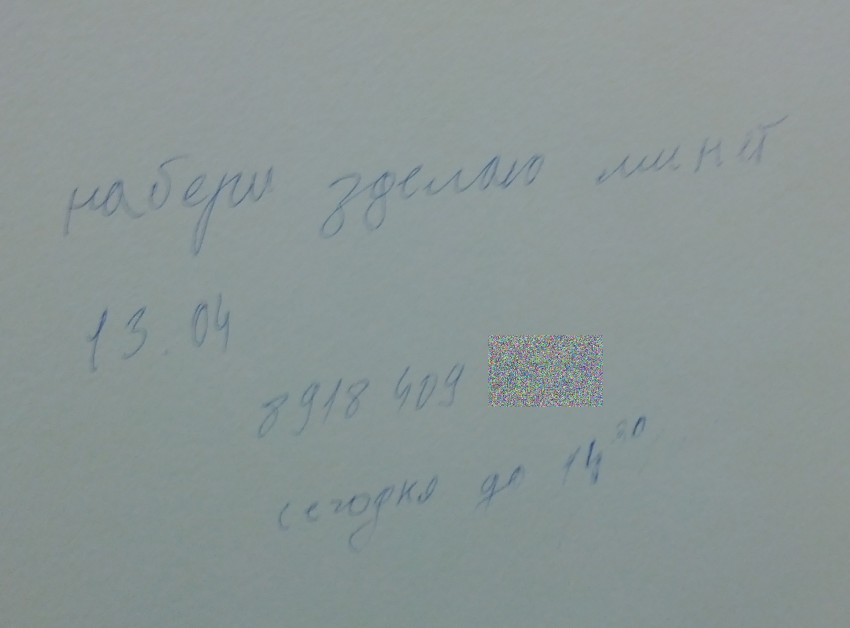 набери зделаю минет
13.04
8918 409
сегодня до 14 30